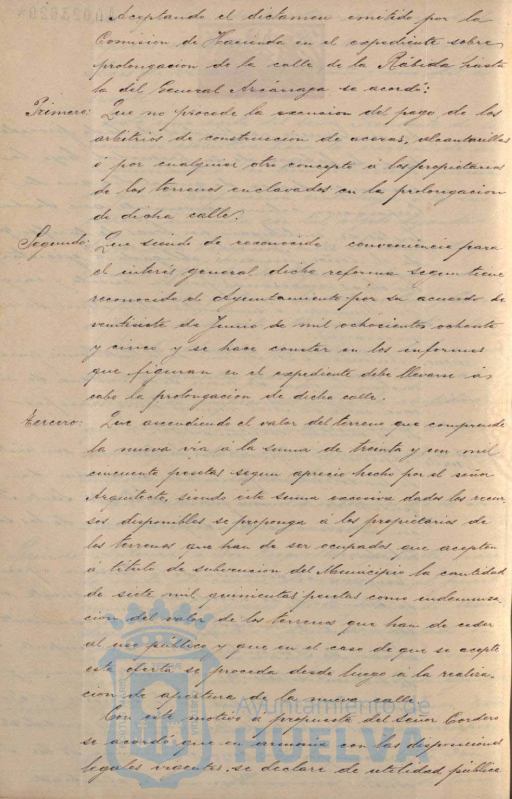 Aceptando el dictamen emitido por la
Comision de Hacienda en el expediente sobre
prolongacion de la calle de la Rábida hasta
la del General Azcárraga se acordó:
Primero: Que no procede la exencion del pago de los
arbitrios de construccion de aceras, alcantarillas
ó por cualquier otro concepto á los propietarios
de los terrenos enclavados en la prolongacion
de dicha calle.
Segundo: Que siendo de reconocida conveniencia para
el interés general dicha reforma segun tiene
reconocido el Ayuntamiento por su acuerdo de
veintisiete de Junio de mil ochocientos ochenta
y cinco y se hace constar en los informes
que figuran en el expediente debe llevarse á
cabo la prolongacion de dicha calle.
Tercero: Que ascendiendo el valor del terreno que comprende
la nueva via á la suma de treinta y un mil
cincuenta pesetas segun aprecio hecho por el señor
Arquitecto, siendo esta suma excesiva dados los recur-
sos disponibles se proponga á los propietarios de
los terrenos que han de ser ocupados que acepten
á titulo de subvencion del Municipio la cantidad
de siete mil quinientas pesetas como indemniza-
cion del valor de los terrenos que han de ceder
al uso público y que en el caso de que se acepte
esta oferta se proceda desde luego á la realiza-
cion de apertura de la nueva calle.
Con este motivo á propuesta del Señor Cordero
se acordó que en armonia con las disposiciones
legales vigentes se declare de utilidad pública
Ayuntamiento de
HUELVA